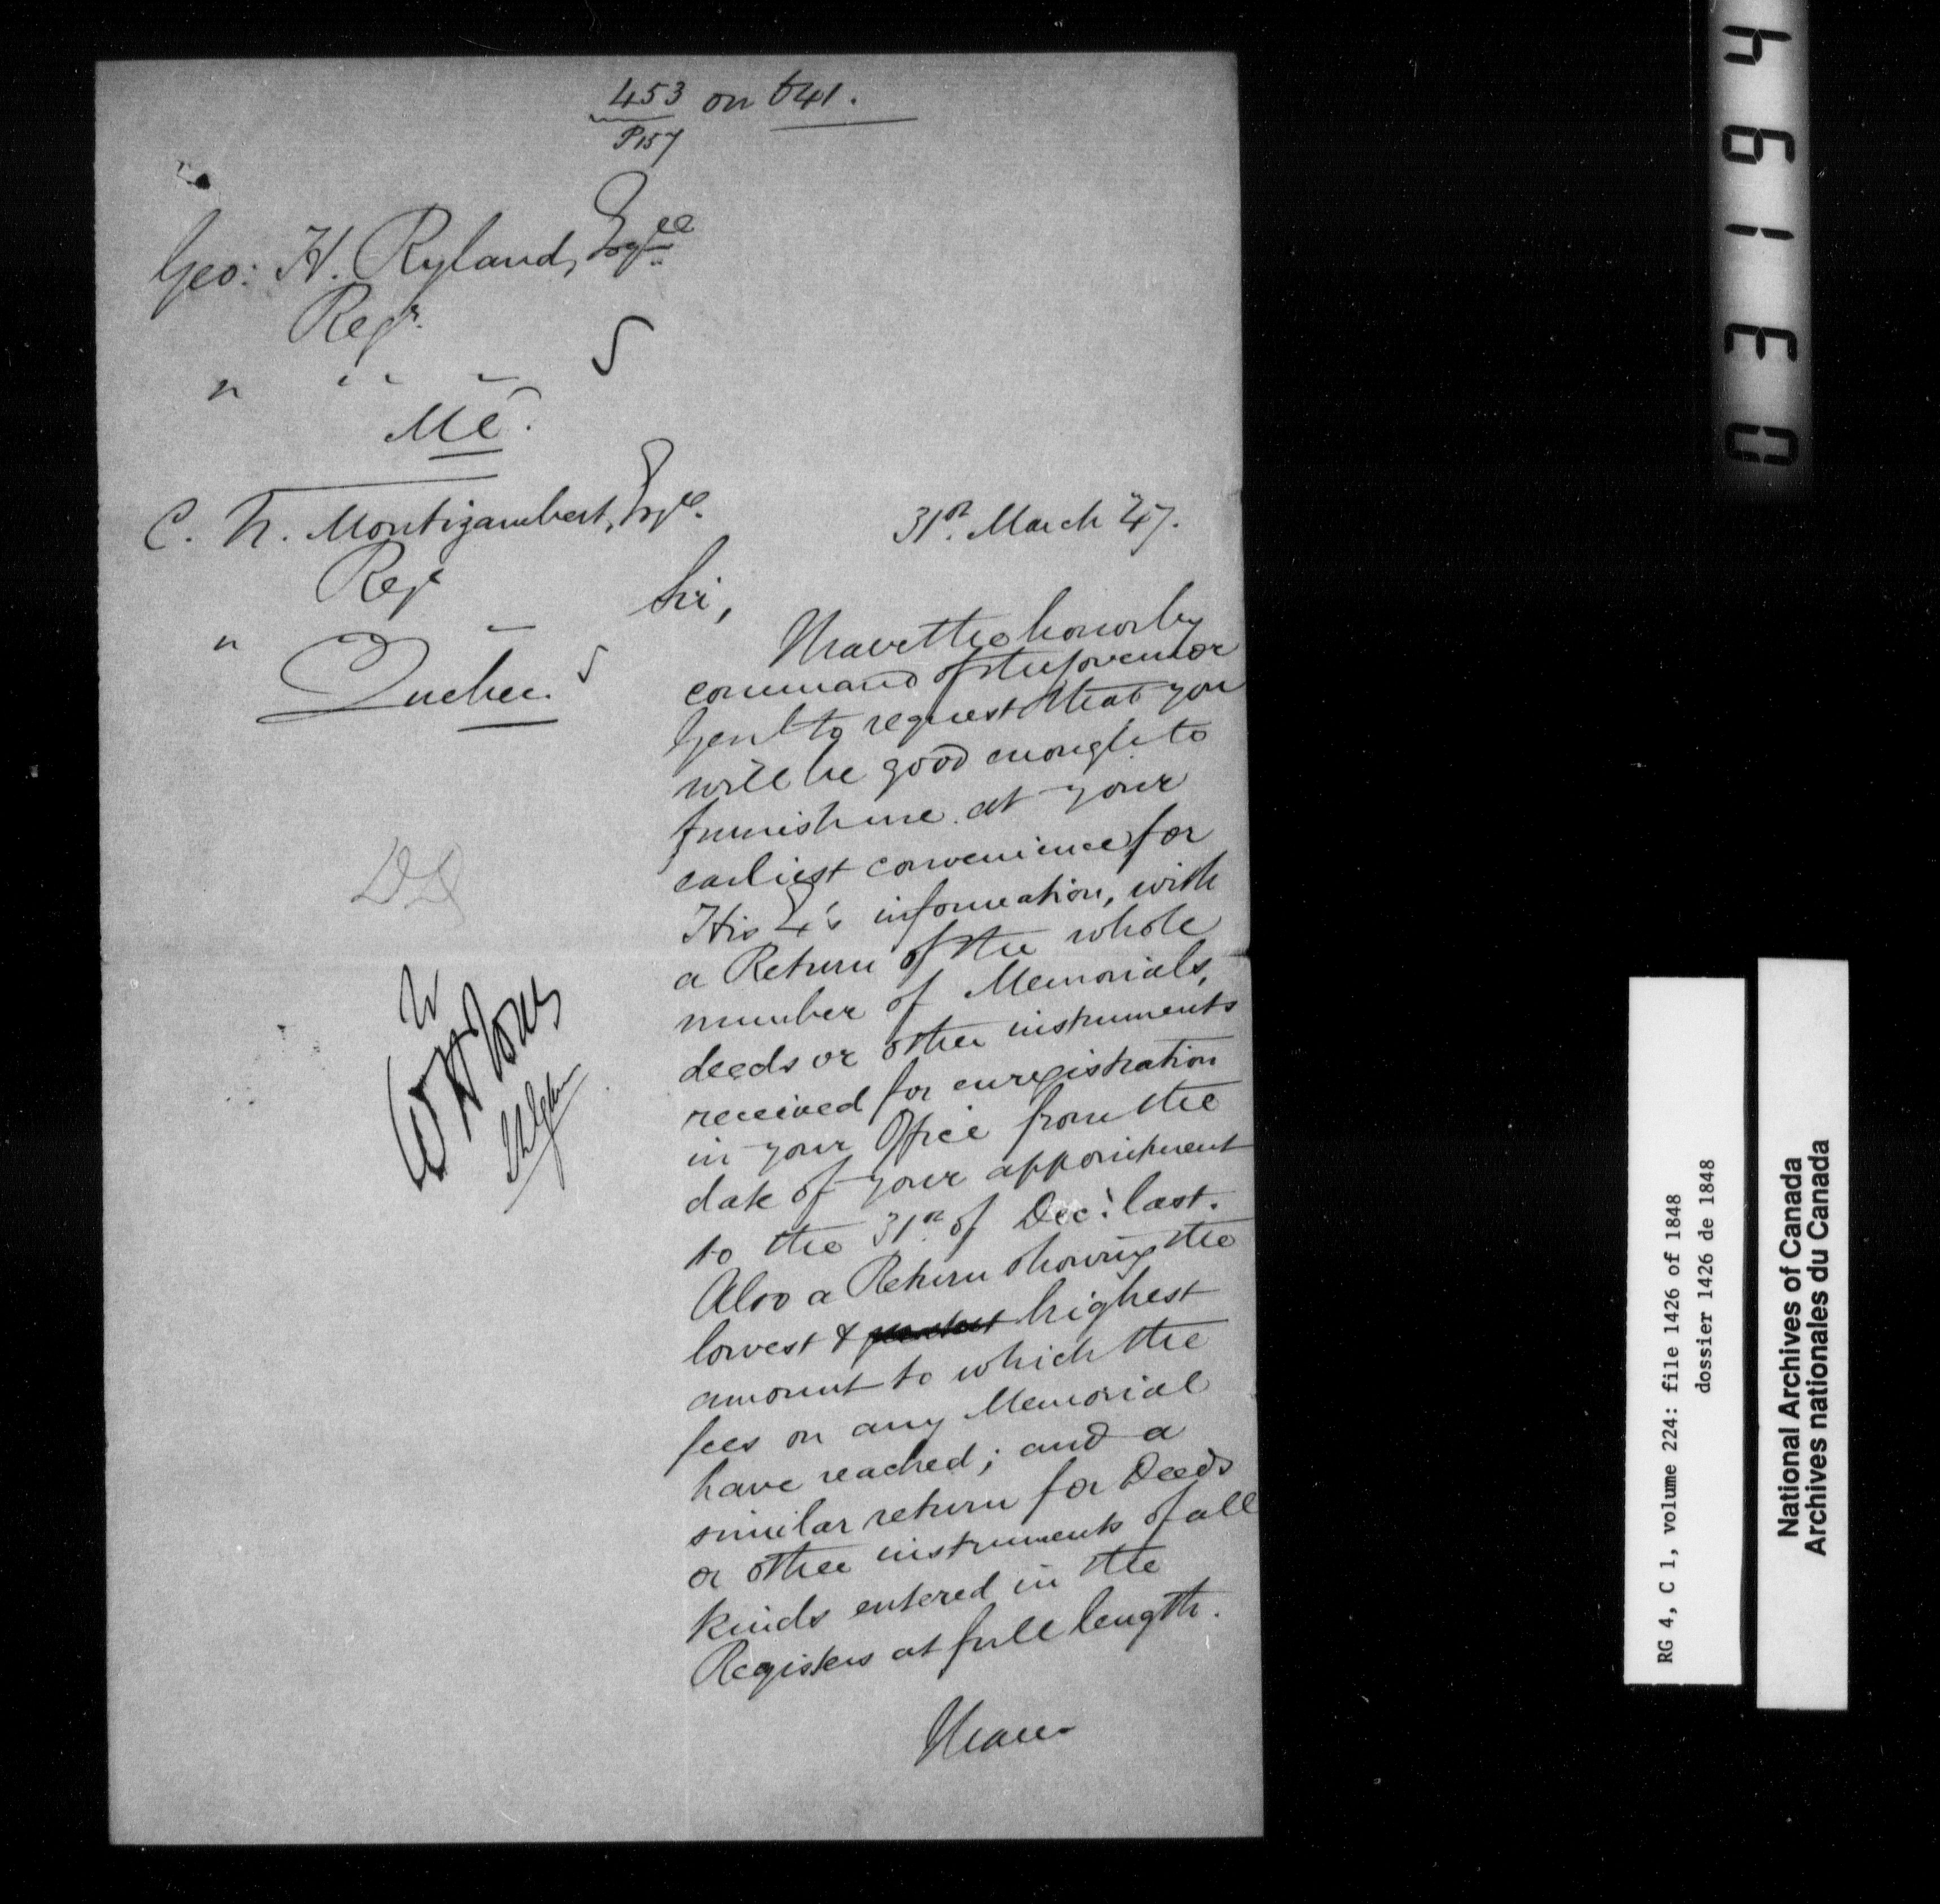 453 on 641.
P157
Geo: H. Ryland, Esqre
Regr.
" " "
Ml.
C. N. Montizambert, Esqre.
Regr
"
Quebec.
31st. March 47.
Sir,
I have the honor by
command of the Governor
Genl to request that you
will be good enough to
furnish me at your
earliest convenience, for
His E's information, with
a Return of the whole
number of Memorials,
deeds or other instruments
received for enregistration
in your Office from the
date of your appointment
to the 31st. of Decr. last.
Also a Return showing the
lowest & highest
amount to which the
fees on any Memorial
have reached; and a
similar return for Deeds
or other instruments of all
kinds entered in the
Registers at full length.
I have
DD
03194
RG 4, C 1, volume 224: file 1426 of 1848
dossier 1426 de 1848
National Archives of Canada
Archives nationales du Canada